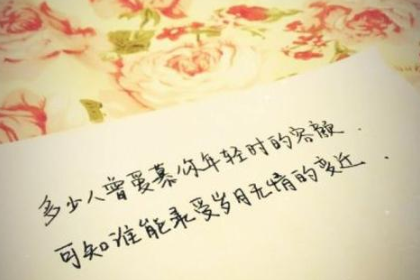 多少人曾爱慕你年轻时的容颜.
可知谁能承受岁月无情的变迁.